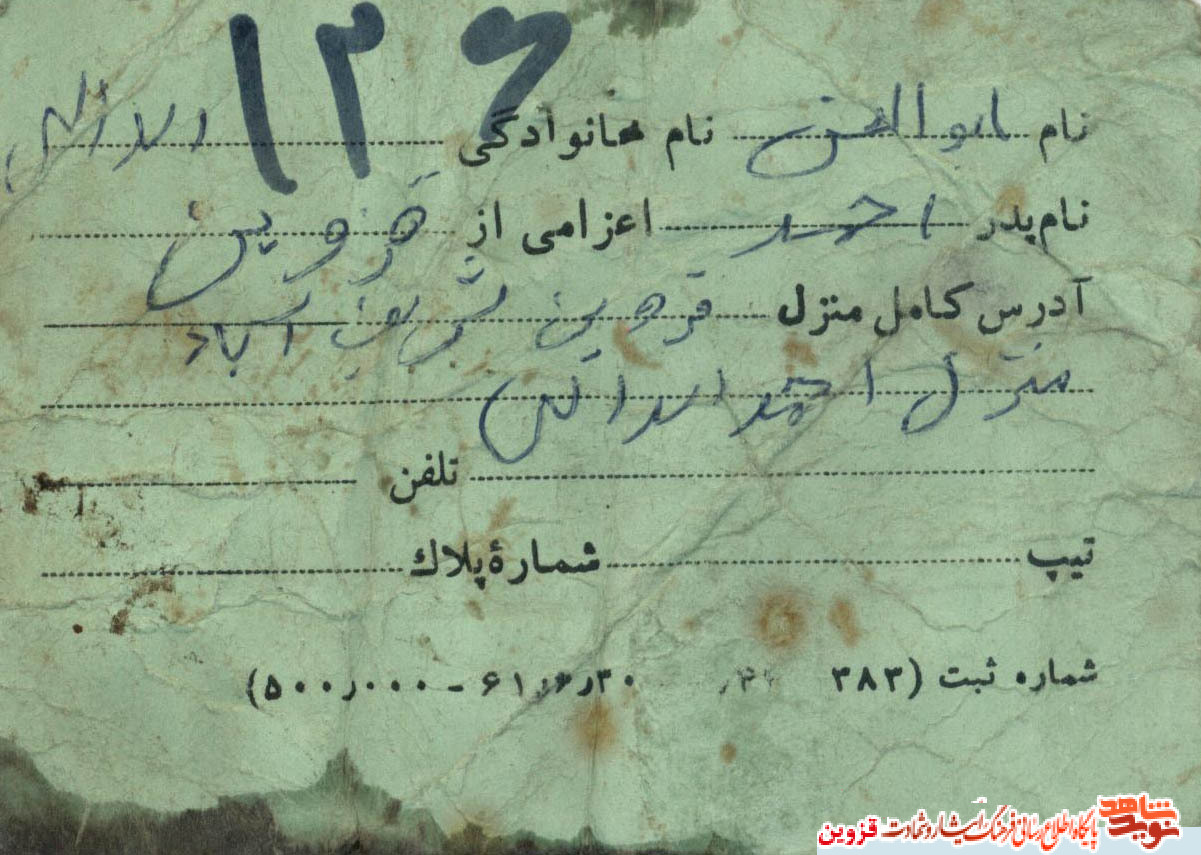 ۱۲۶
نام ابوالحسن نام خانوادگی اسدالهی
نام پدر احمد اعزامی از قزوین
آدرس کامل منزل قزوین شریف آباد
منزل احمد اسدالهی
تلفن
تیپ شمارهٔ پلاك
شماره ثبت (۳۸۳ ۶۱٫۶٫۳۰ - ۵۰۰٫۰۰۰)
شاهد نوید
پایگاه اطلاع رسانی فرهنگ ایثار و شهادت قزوین